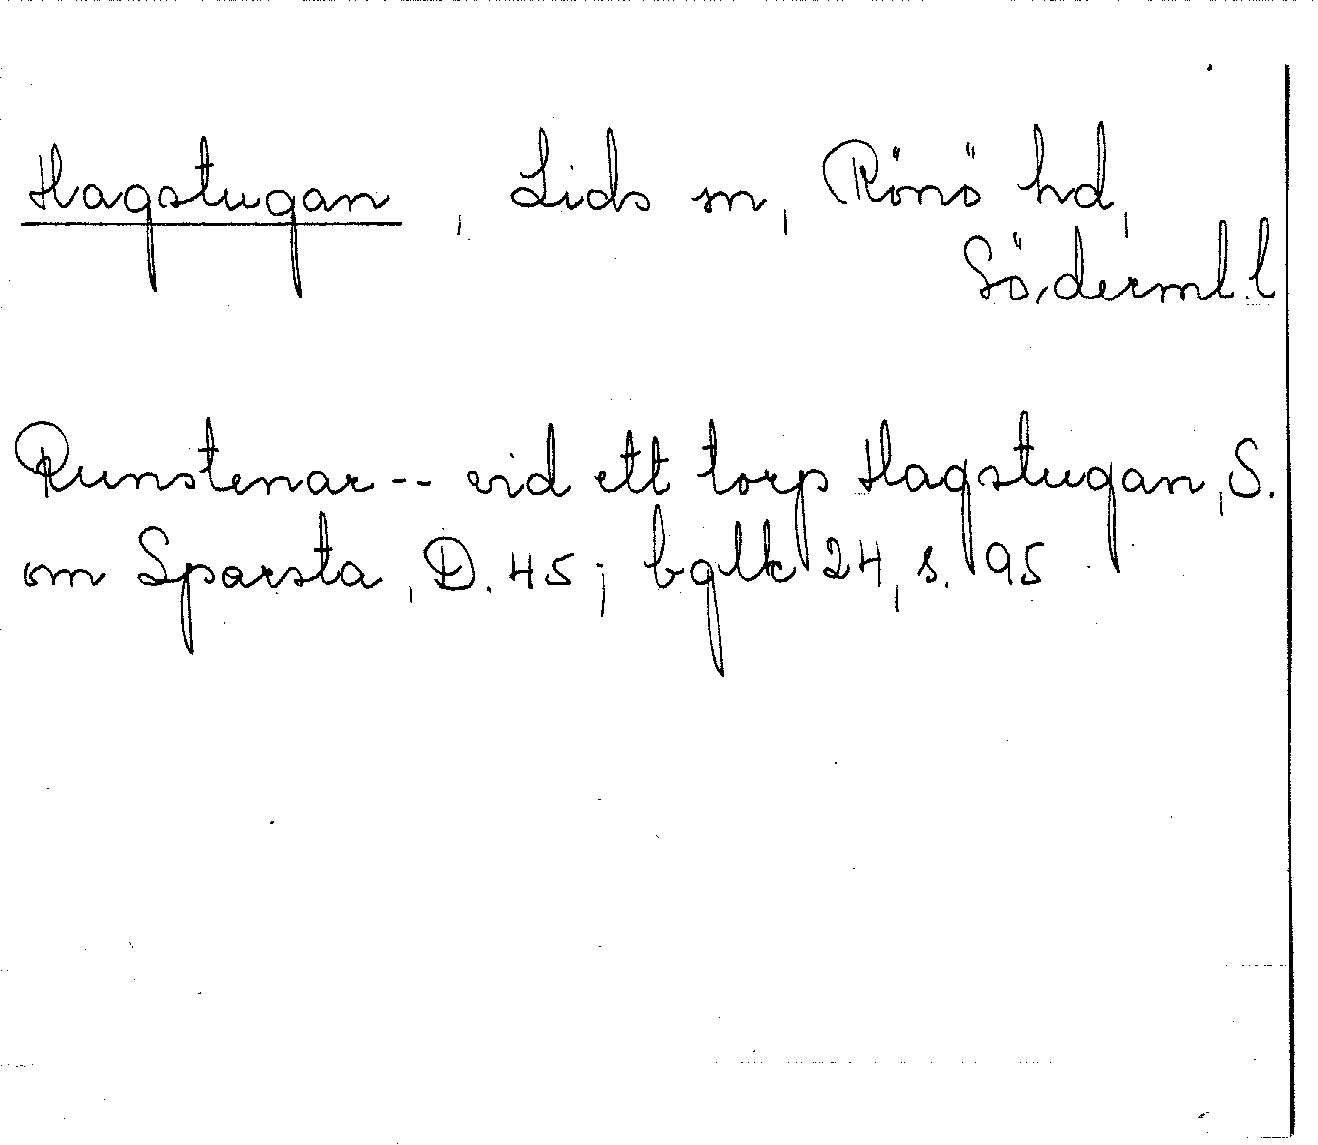 Hagstugan, Lids sn, Rönö hd,
Söderml. l
Runstenar -- vid ett torp Hagstugan, S.
om Sparsta, D. 45; bglk 24, s. 95